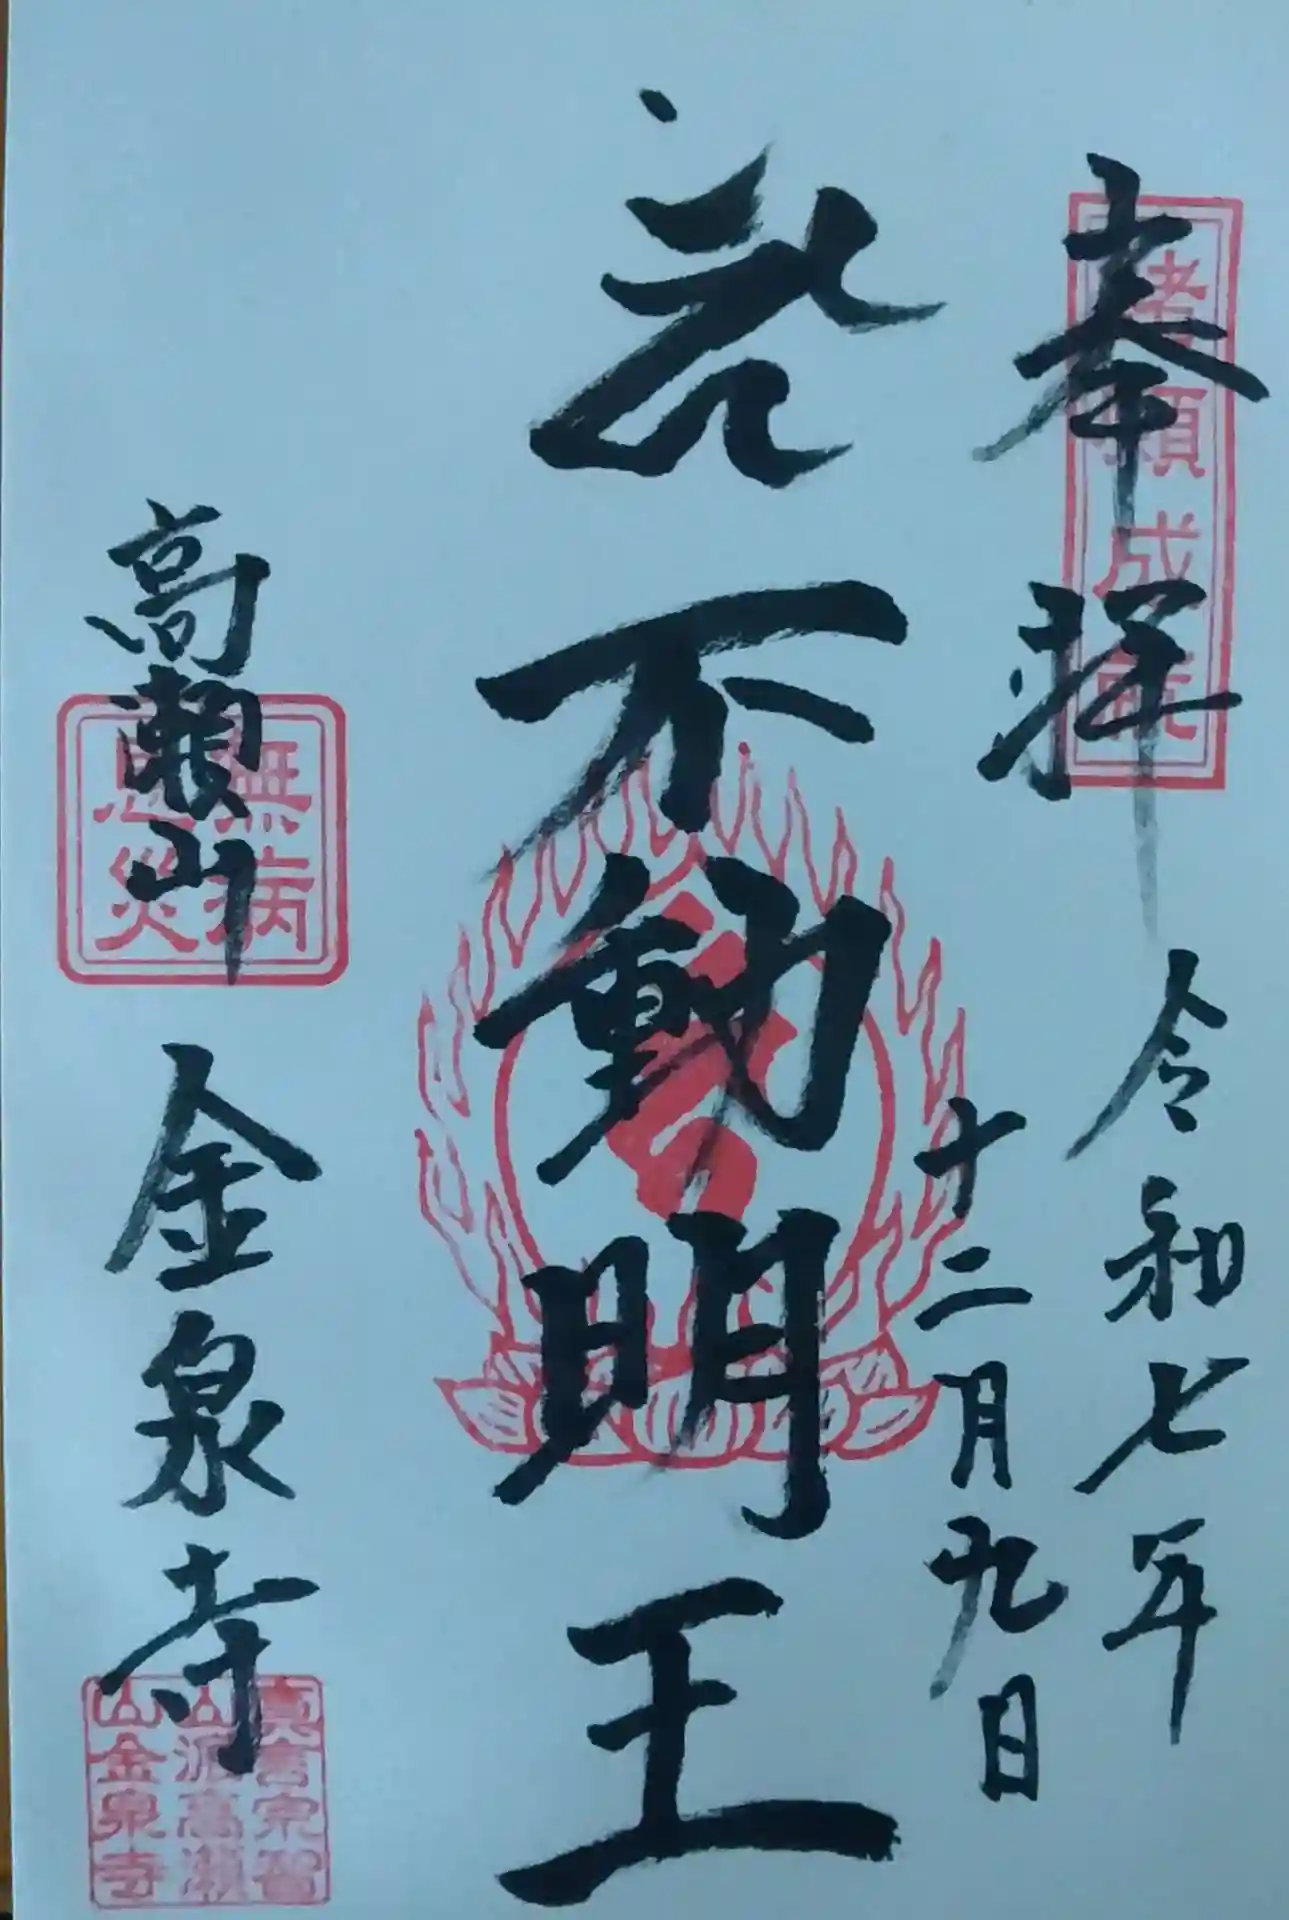 奉拝
諸願成就
令和七年
十二月九日
不動明王
高瀬山
無病
息災
金泉寺
真言宗智
山派高瀬
山金泉寺